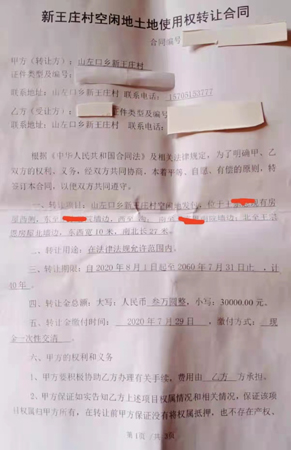 新王庄村空闲地土地使用权转让合同
合同编号
甲方（转让方）：山左口乡新王庄村
证件类型及编号：
联系地址：山左口乡新王庄村 联系电话：
乙方（受让方）： 证件类型及编号：
联系地址：山左口乡新王庄村 联系电话：
根据《中华人民共和国合同法》及相关法律规定，为了明确甲、乙
双方的权利、义务，经双方共同协商，本着平等、自愿、有偿的原则，特
签订本合同，以便双方共同遵守。
一、转让项目：山左口乡新王庄村空闲地 位于 现有房
东西宽10米，南北长27米。
二、转让用途：在法律法规允许范围内。
三、转让期限：自2020年8月1日起至2060年7月31日止，计
40年。
四、转让金总额：大写：人民币 叁万圆整，小写：30000.00元。
五、转让金缴付时间： 2020年7月29日 ，缴付方式： 现
金一次性交清 。
六、甲方的权利和义务
1、甲方要积极协助乙方办理有关手续，费用由 乙方 方承担。
2、甲方保证如实告知乙方上述项目权属情况和相关情况，保证该项
目权属归甲方所有，在转让前甲方保证没有将权属抵押，也不存在产权、
第1页/共3页